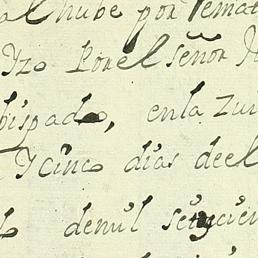 al hube por remat
Yzo Por el señor
bispado, enla
Y cinco dias de el
denvil setecien